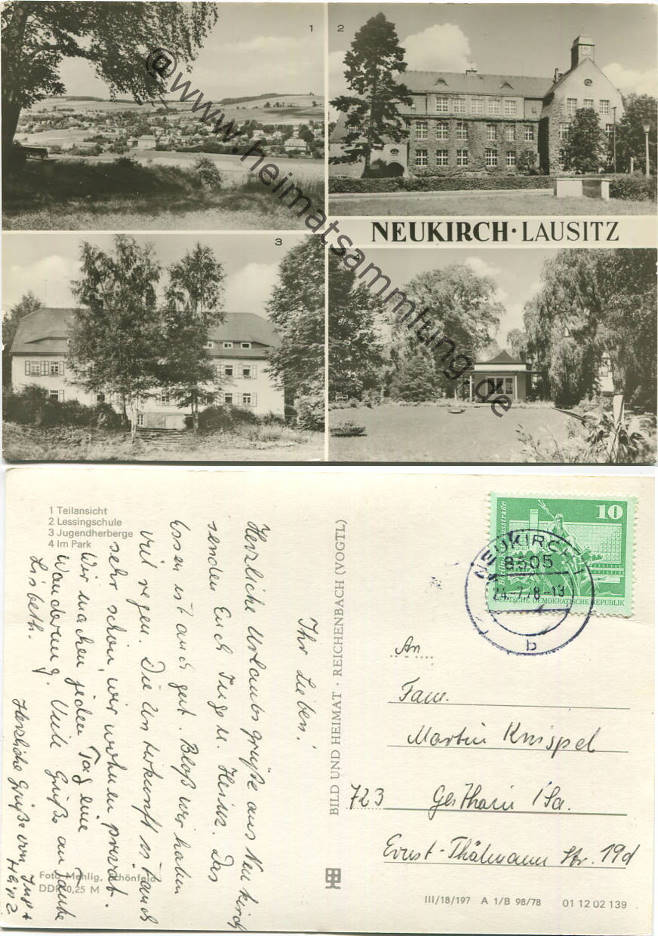 1
2
3
@www.heimatsammlung.de
NEUKIRCH · LAUSITZ
1 Teilansicht
2 Lessingschule
3 Jugendherberge
4 Im Park
Ihr Lieben!
Herzliche Urlaubsgrüße aus Neukirch
senden Euch Inge u. Heinz. Das
Essen ist auch gut. Bloß wir haben
viel regen. Die Unterkunft ist auch
sehr schön, wir wohnen privat.
Wir machen jeden Tag eine
Wanderung. Viele Grüße an
Lisbeth.
Herzliche Grüße von Inge +
Heinz
Foto Mehlig, Schönfeld
DDR 0,25 M
BILD UND HEIMAT · REICHENBACH (VOGTL)
10
DEUTSCHE DEMOKRATISCHE REPUBLIK
NEUKIRCH
8505
24.-7.78-13
b
An
Fam.
Martin Knispel
723 Geithain i/Sa.
Ernst-Thälmann Str. 19d
III/18/197 A 1/B 98/78 01 12 02 139